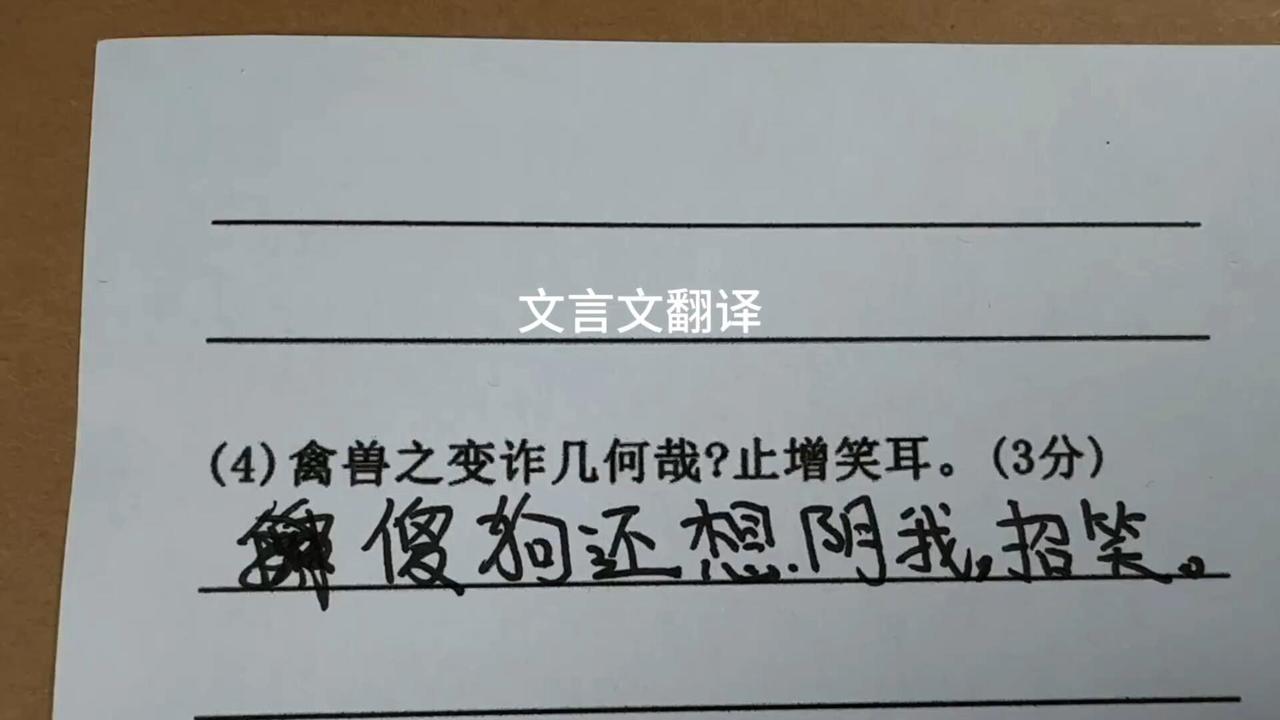 文言文翻译
(4)禽兽之变诈几何哉?止增笑耳。(3分)
傻狗还想阴我,招笑。